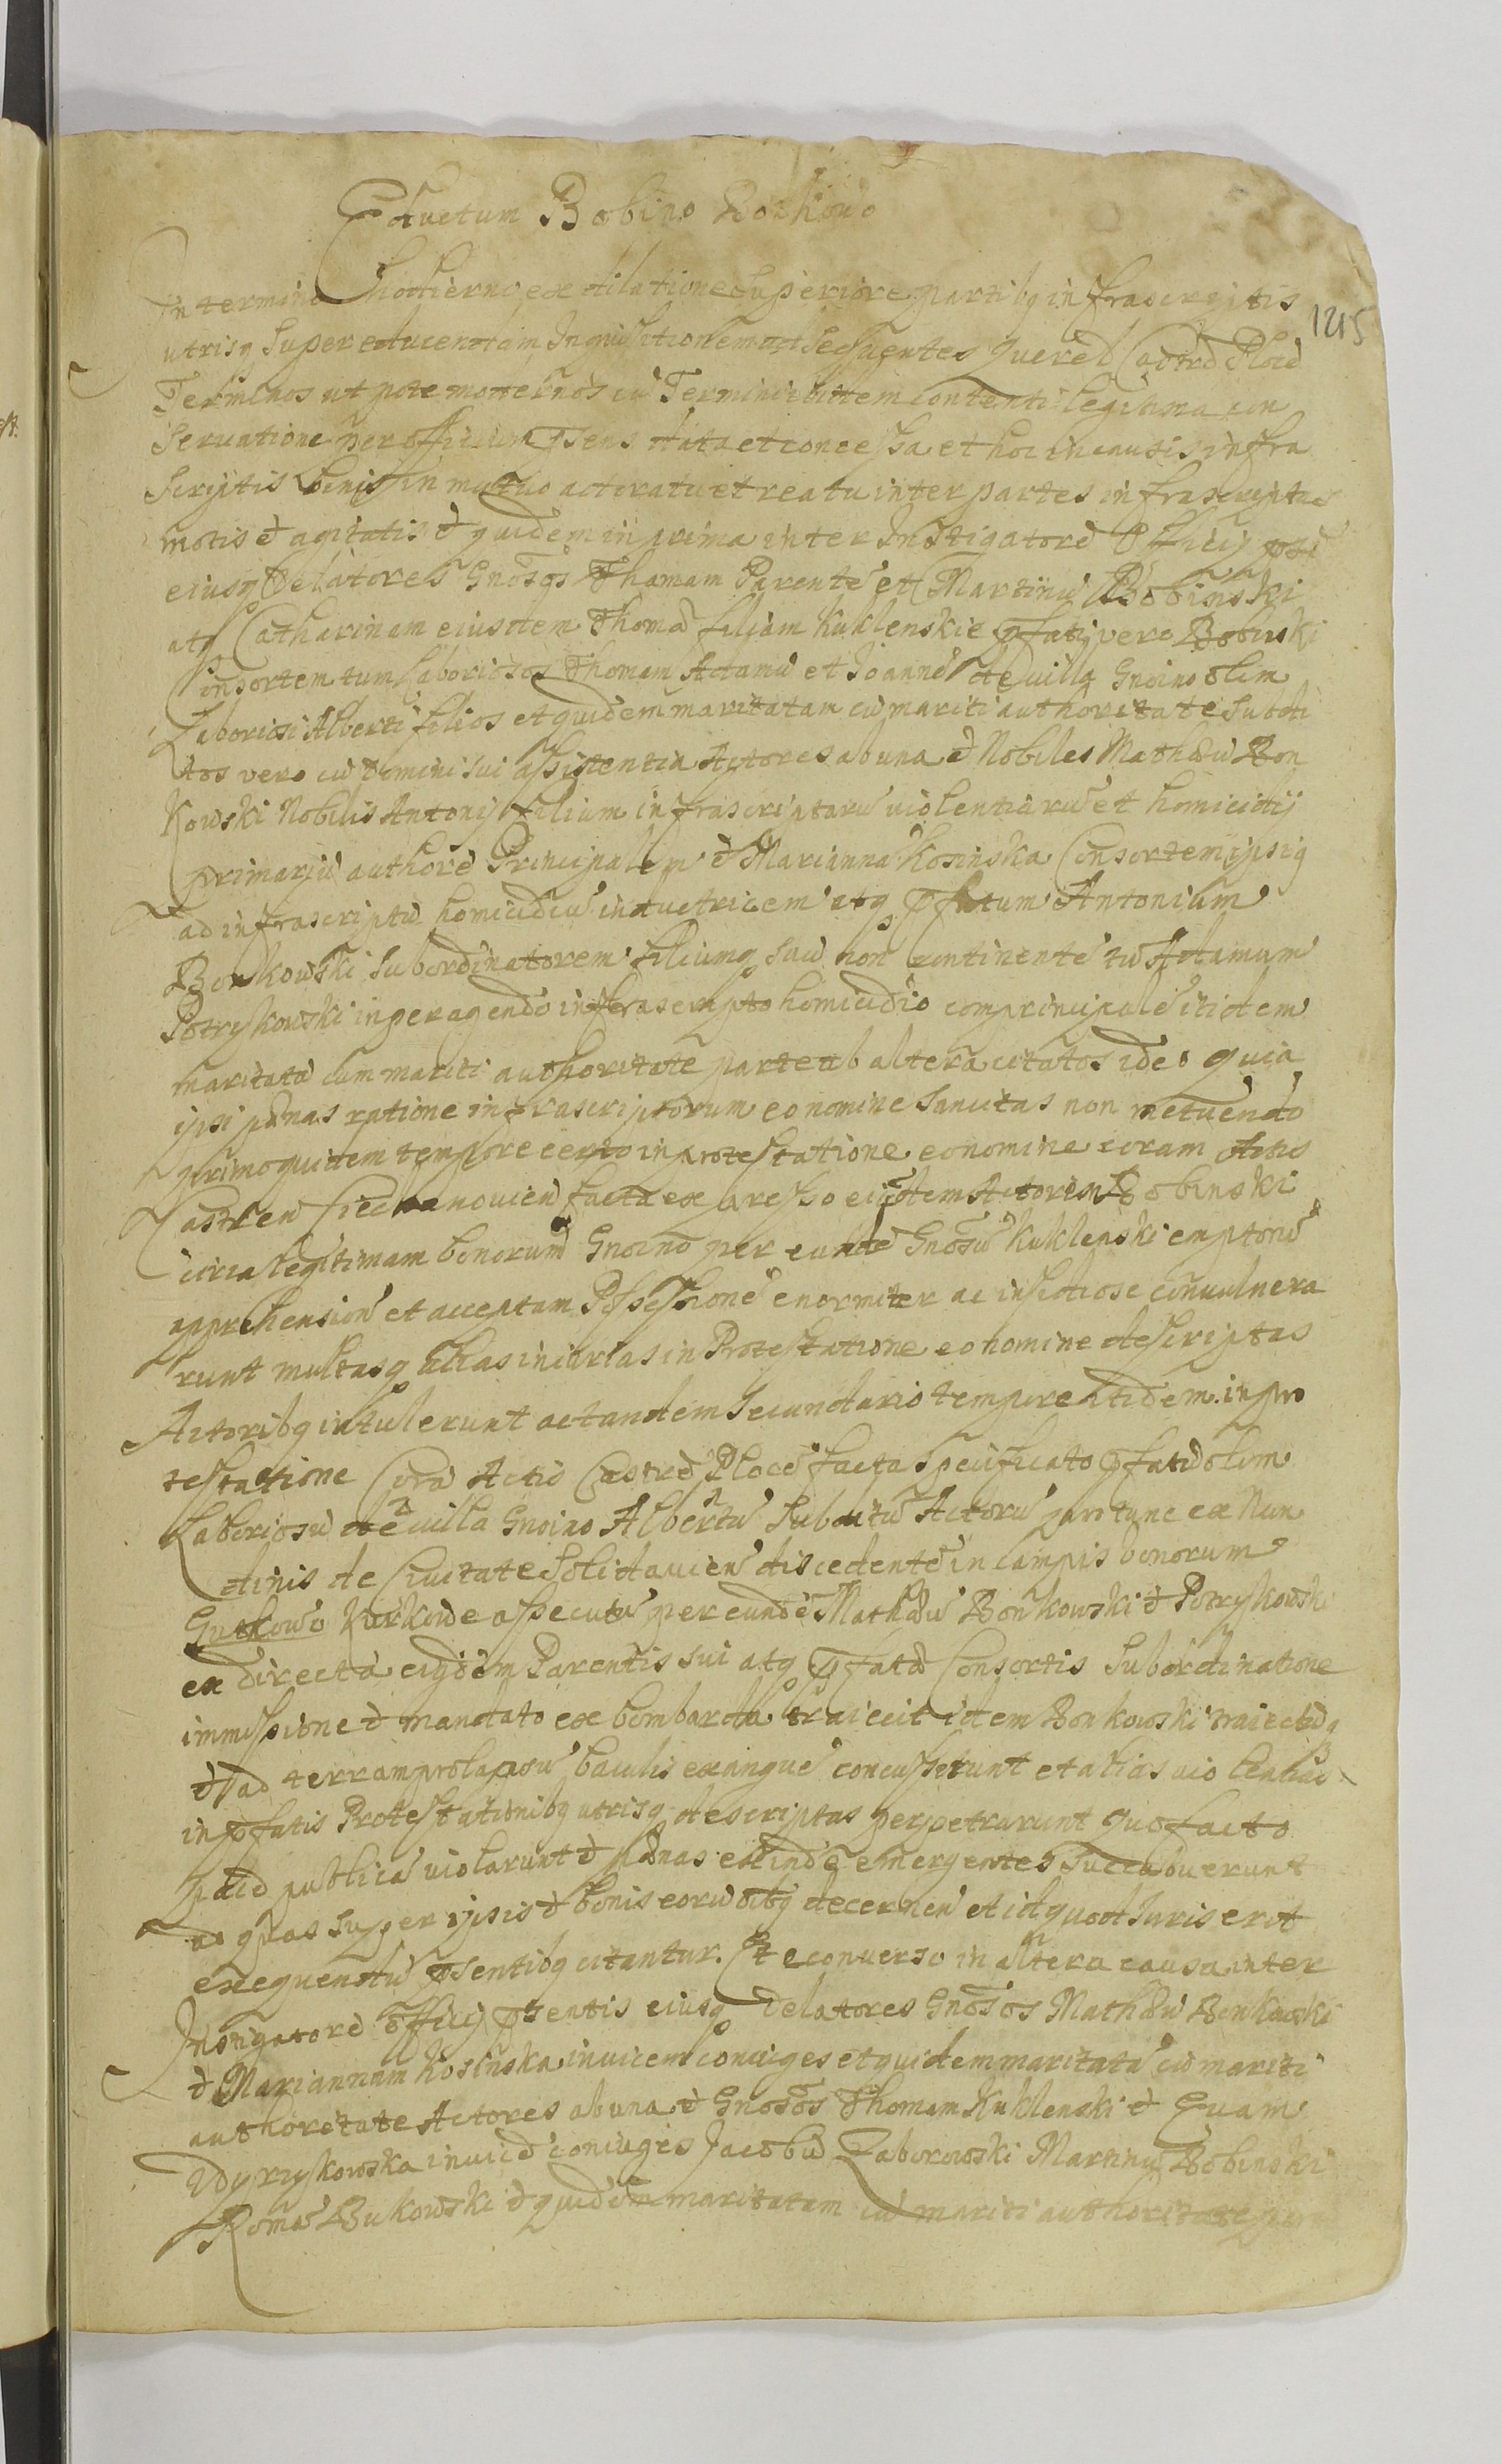 Eductum Bobino Bonkowo
In termino hodierno ex dilatione superiore partibq infrascriptis
1215
utrisq super educendam Inquisitionem ad sequentes querel Castrd Plocd
Terminos ut pote modernos cũ Termini ibidem contenti legitima con
servatione per officium psens data et concessa et hoc in causis infra
scriptis binis in mutuo actoratu et reatu inter partes infrascriptas
motis et agitatis et quidem in prima inter Instigatorẽ Officij psẽ
eiusq Delatores Gnosos Thomam Parentẽ et Martinũ Bobinski
atq Catharinam eiusdem Thomæ filiam Kuklenskie pfati vero Bobinski
Consortem tum Laboriosos Thomam Adamũ et Joannẽ de villa Gnoino olim
Laboriosi Alberti filios et quidem maritatam cũ mariti authoritate subdi
tos vero cũ domini sui assistentia Actores ab una et Nobiles Mathæũ Bon
kowski Nobilis Antonij filium infrascriptarũ violentiarũ et homicidij
primariũ authorẽ Principalem et Marianna Kosinska Consortem ipsiq
ad infrascriptũ homicidiũ inductricem atq pfatum Antonium
Bonkowski subordinatorem filiumq suũ non continentẽ tũ Adamum
Potrykowski in peragendo infrascripto homicidio comprincipalẽ itidem
maritatã cum mariti authoritate parte ab altera citatos ideo quia
ipsi pænas ratione infrascriptorum eo nomine sancitas non metuendo
primo quidem tempore certo in protestatione eo nomine coram Actis
Castren Ciechanovien facta ex presso eiusdem Actorem Bobinski
circa legitimam bonorum Gnoino per eundẽ Gnosũ Kuklenski emptorũ
apprehension et acceptam Possessionẽ enormiter ac insidiose convulnera
runt multasq alias iniurias in Protestatione eo nomine descriptas
Actoribq intulerunt ac tandem secundario tempore itidem in pro
testatione Corã Actis Castrẽ Plocẽ facta specificato pfatũ olim
Laboriosũ de villa Gnoino Albertũ subditũ Actorũ pro tunc ex Nun
dinis de Civitate Solidavien discedentẽ in campis bonorum
Gutkowo Kurkowe assecutũ per eundẽ Mathæũ Bonkowski et Potrykowski
ex directa eiqdem Parentis sui atq pfatæ Consortis subordinatione
immissione et mandato ex bombarda traiecit idem Bonkowski traiectũq
et ad terram prolapsũ baculis exanguẽ concusserunt et alias violentias
in pfatis Protestationibq utrisq descriptas perpetrarunt quo facto
pacẽ publicã violarunt et pænas exinde emergentes succubuerunt
ad quas super ipsis et bonis eorũ oibq decernen et id quod Juris erit
exequendũ psentibq citantur. Et e converso in altera causa inter
Instigatorẽ officij psentis eiusq delatores Gnosos Mathæũ Bonkowski
et Mariannam Kosinska invicem coniuges et quidem maritatã cũ mariti
authoritate Actores ab una et Gnosos Thomam Kuklenski et Evam
Wdyrzyskowska invicẽ coniuges Jacobũ Zaborowski Martinũ Bobinski
Romã Bukowski et quidem maritatam cũ mariti authoritate